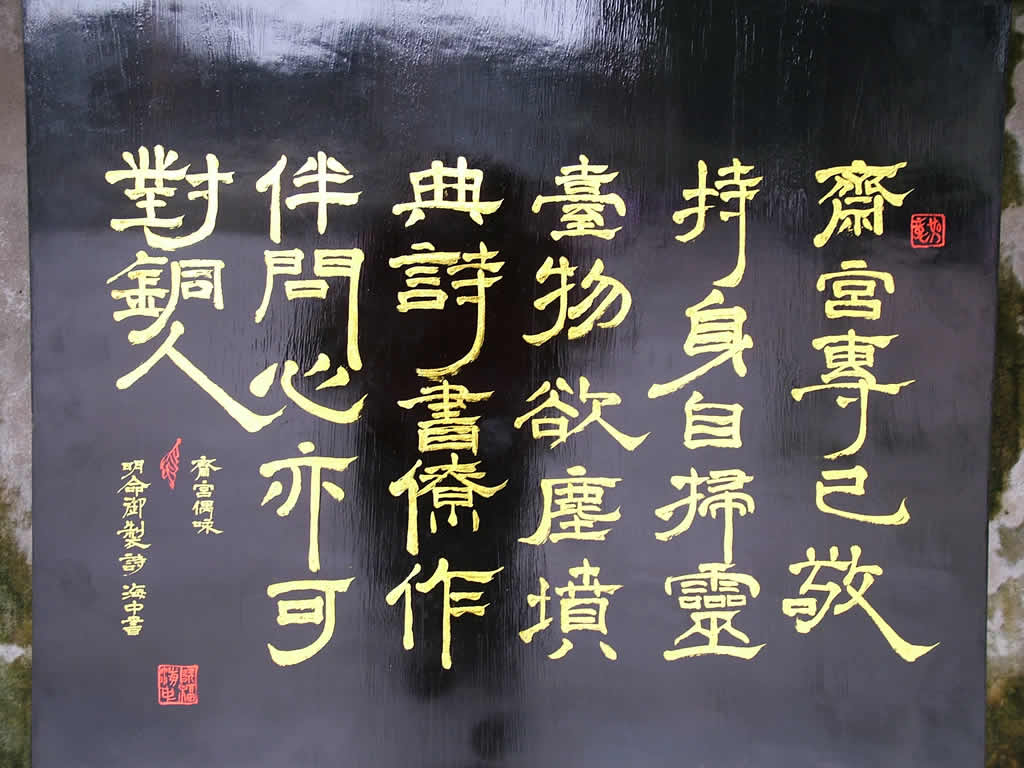 齋宮專已敬
持身自掃靈
臺物欲塵墳
典詩書僚作
伴問心亦可
對銅人
齋宮偶咏
明命御製詩海中書